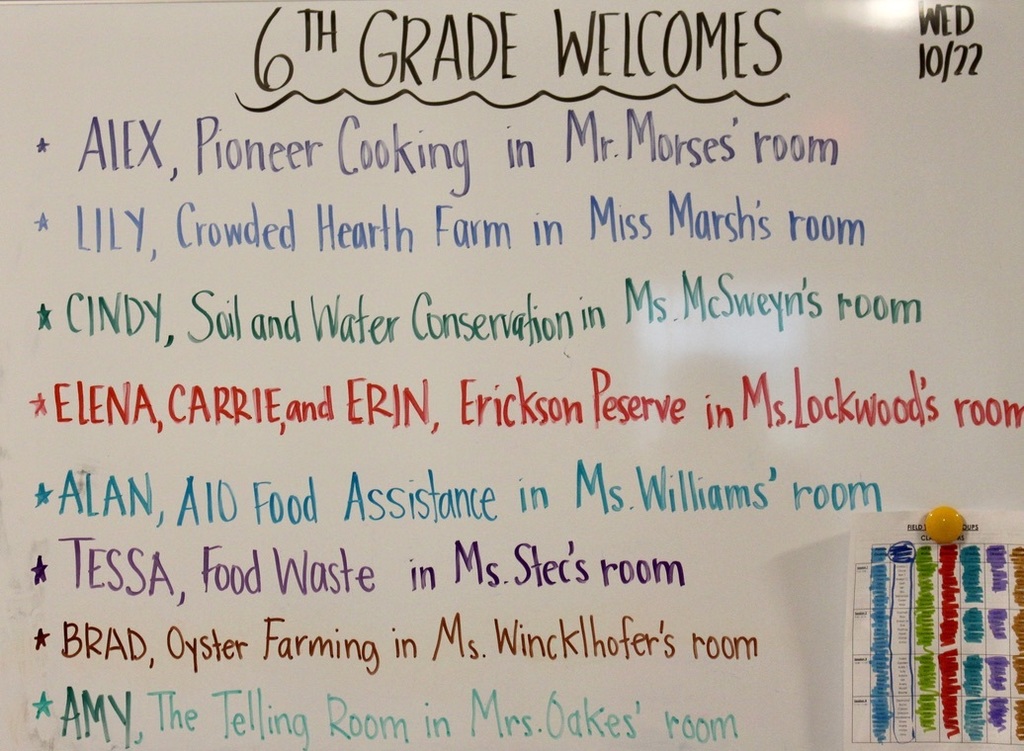 6TH GRADE WELCOMES
WED
10/22
* ALEX, Pioneer Cooking in Mr. Morses' room
* LILY, Crowded Hearth Farm in Miss Marsh's room
* CINDY, Soil and Water Conservation in Ms. McSweyn's room
* ELENA, CARRIE, and ERIN, Erickson Peserve in Ms. Lockwood's room
* ALAN, AIO Food Assistance in Ms. Williams' room
* TESSA, Food Waste in Ms. Stec's room
* BRAD, Oyster Farming in Ms. Wincklhofer's room
* AMY, The Telling Room in Mrs. Oakes' room
FIELD